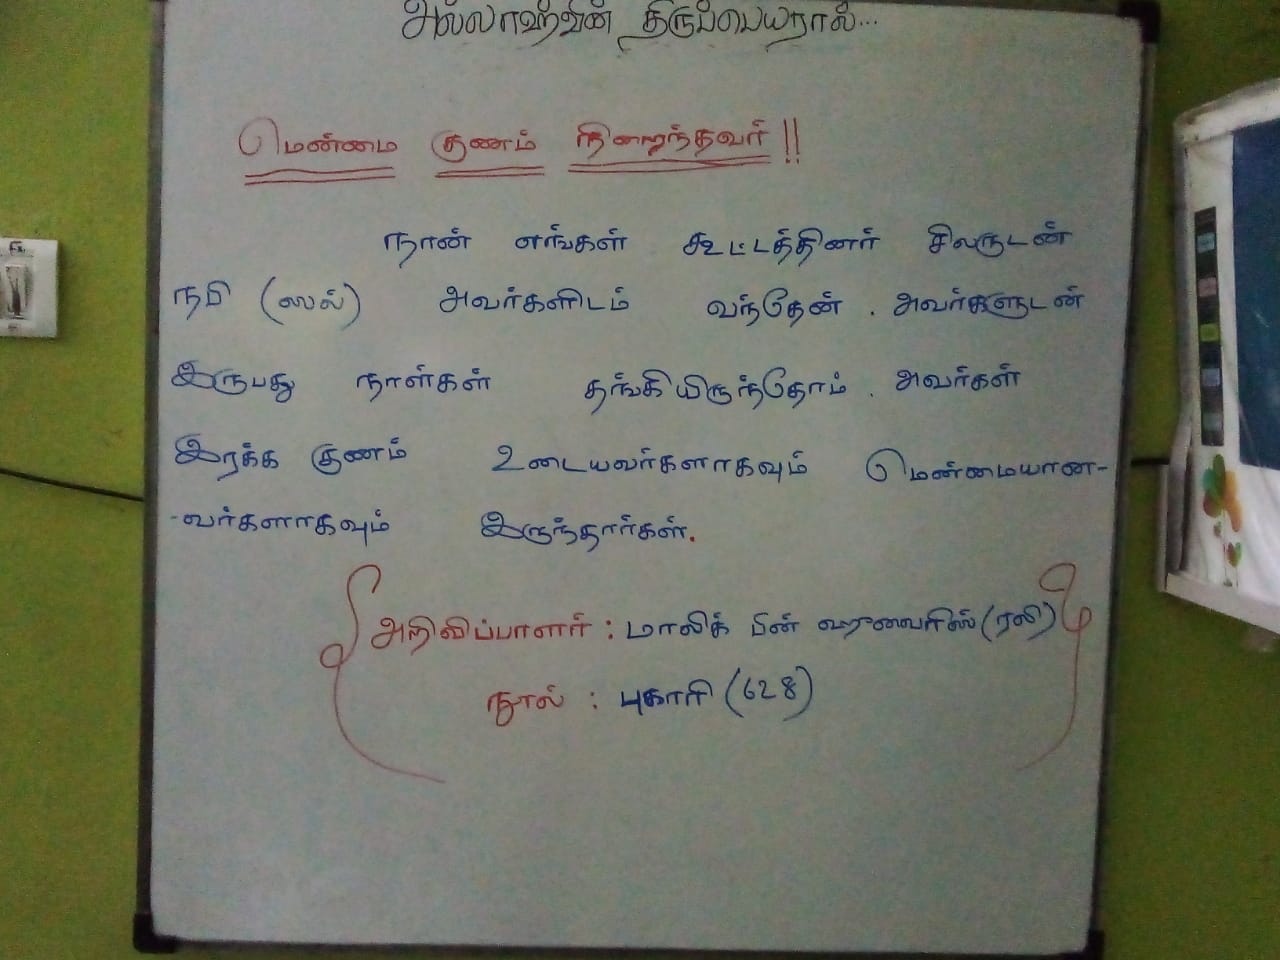 அல்லாஹ்வின் திருப்பெயரால்...
மென்மை குணம் நிறைந்தவர்!!
நான் எங்கள் கூட்டத்தினர் சிலருடன்
நபி (ஸல்) அவர்களிடம் வந்தேன். அவர்களுடன்
இருபது நாள்கள் தங்கியிருந்தோம். அவர்கள்
இரக்க குணம் உடையவர்களாகவும் மென்மையான-
-வர்களாகவும் இருந்தார்கள்.
அறிவிப்பாளர் : மாலிக் பின் ஹுவைரிஸ் (ரலி)
நூல் : புகாரி (628)